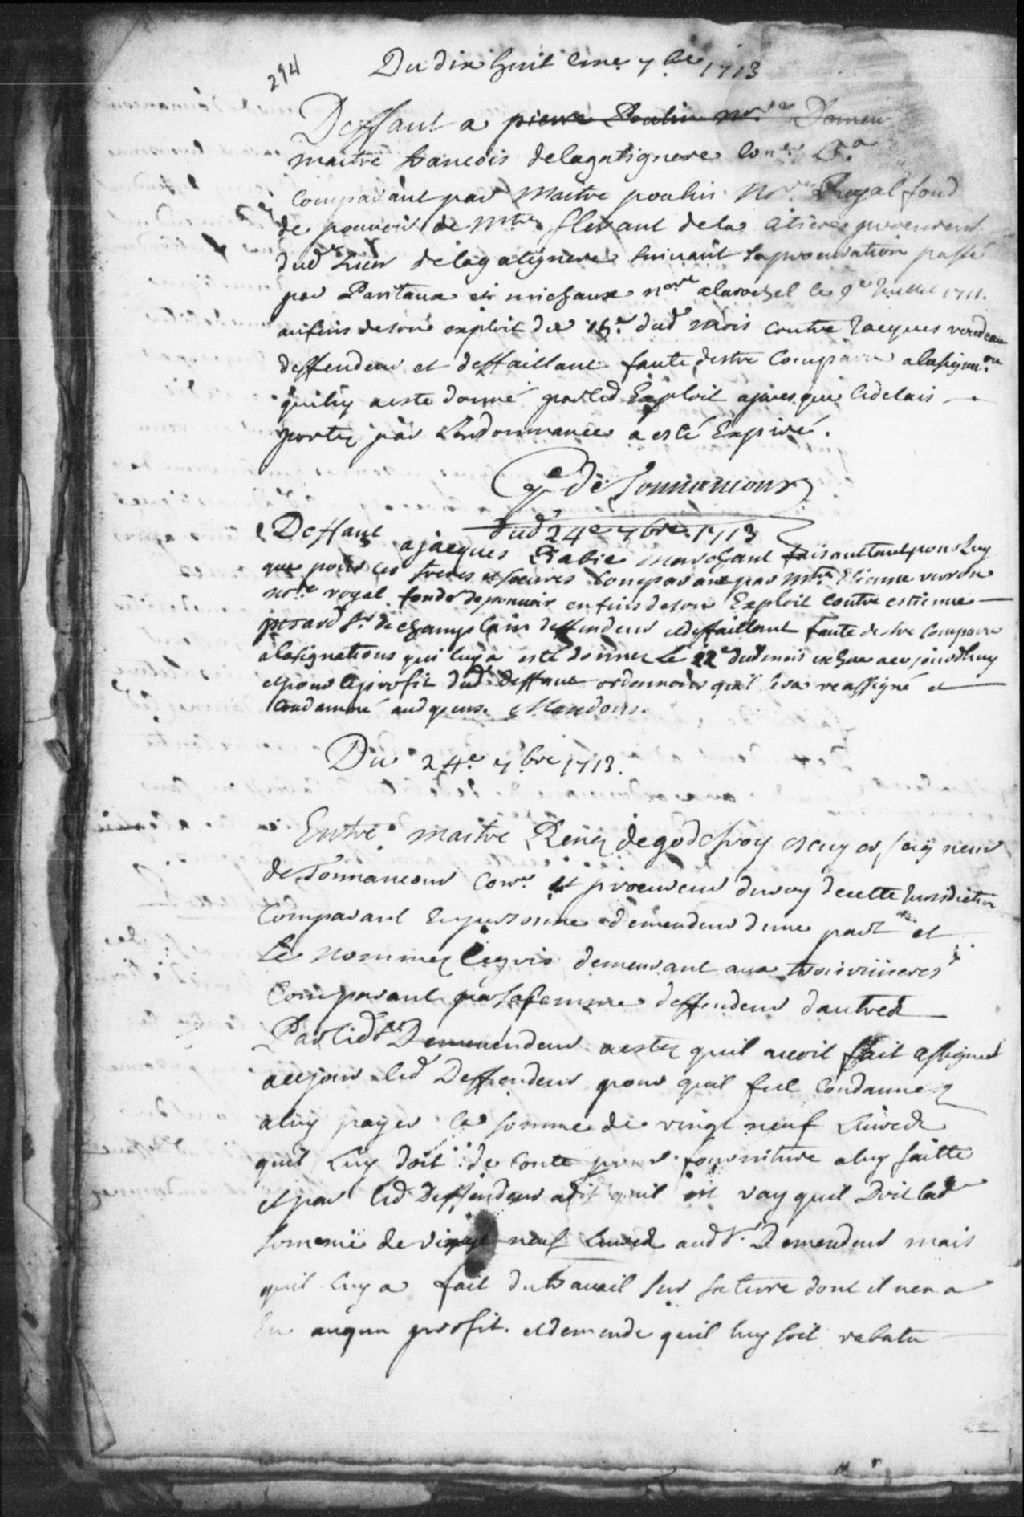 294
Du dix huit eme 7bre 1713
Deffaut a pierre Poulin nre Domeu
maitre francois delagatignere Conr
Comparant par Maitre poulin Nre Royal fond
de pouvoir de Mtre fleurant dela procureur
dud sieur delagatignere suivant la procuration passé
par et michaux nore alarochel le 9e Juillet 1711
aufins de son exploit du 15e dud mois contre Jacques
deffendeur et deffaillant faute destre Comparu alasignaon
quiluy aeste donné par led Exploit apres que ledelais
portez par Lordonnance a esté Expiré.
de Tonnancour
Deffaut dud 24e 7bre 1713
a jacques Babie marchant faisant tant pour Luy
que pour ces freres et soeures Comparant par Mtre Etienne veron
nore royal fondé de pouvoir en fins de son Exploit contre estienne
pezard Sr de champlain deffendeur et deffaillant faute destre Comparu
alasignations qui luy a esté donnée le 22e dud mois aujourdhuy
et pour le profit dud deffaut ordonnons quil sera reassigné et
Condamné aud depens. Mandons.
Du 24e 7bre 1713.
Entre maitre René degodefroy escuyer seigneur
de Tonnancour Conr et procureur du roy decette Jurisdiction
Comparant En personne demendeur dune part et
Le nommez demeurant aux troisrivieres
Comparant par sa femme deffendeur dautre
Par led Sr Demendeur aestez quil auoit fait assigner
acejour led Deffendeur pour quil fut Condamnez
aluy payer la somme de vingt neuf Livres
quil Luy doit de Conte pour fourniture aluy faitte
et par led Deffendeur a dit quil est vray quil doit lad
somme de vingt neuf Livres audt. Demendeur mais
quil luy a fait du travail sur sa terre dont il nen a
Eu auqun profit. et demende quil luy soit rabatu